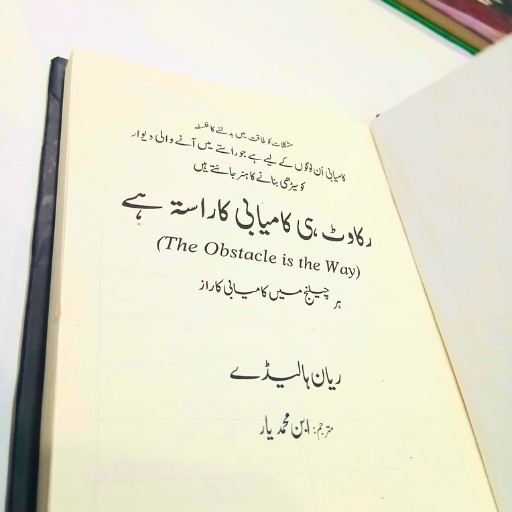 مشکلات کو طاقت میں بدلنے کا فلسفہ
کامیابی اُن لوگوں کے لیے ہے جو راستے میں آنے والی دیوار
کو سیڑھی بنانے کا ہنر جانتے ہیں
رکاوٹ ہی کامیابی کا راستہ ہے
(The Obstacle is the Way)
ہر چیلنج میں کامیابی کا راز
ریان ہالیڈے
مترجم: ابن محمد یار